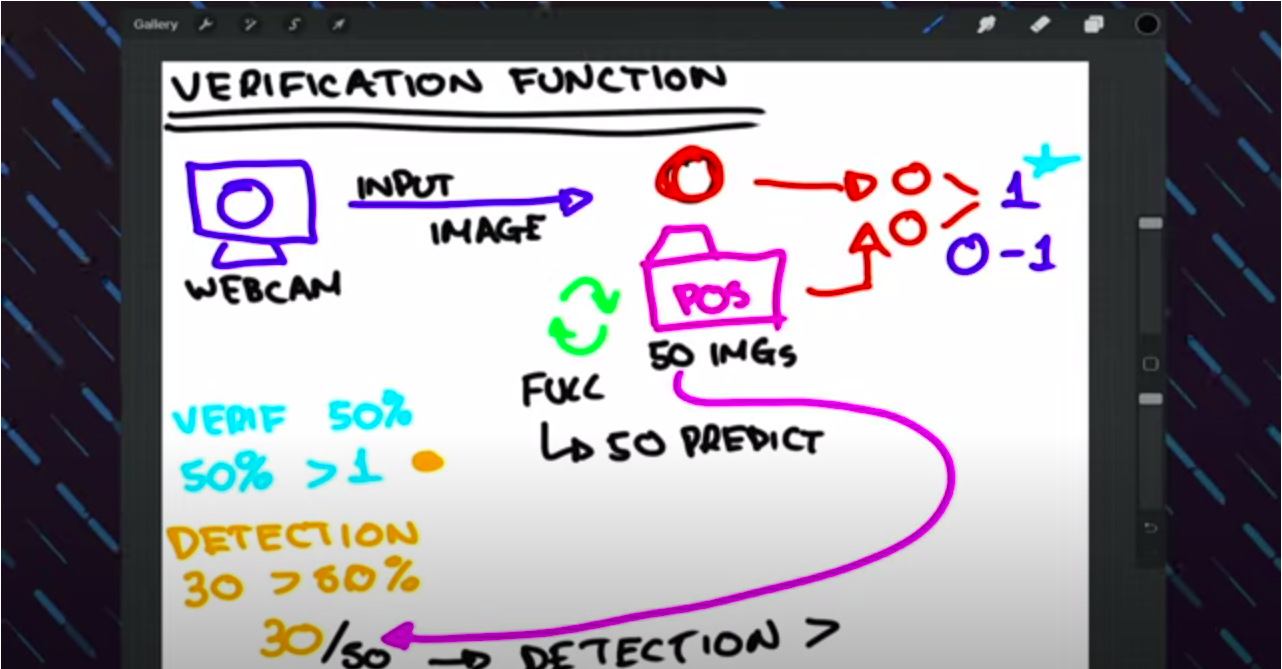 Gallery
VERIFICATION FUNCTION
INPUT
IMAGE
WEBCAM
1
0-1
POS
50 IMGs
FULL
50 PREDICT
VERIF 50%
50% >1
DETECTION
30 > 50%
30/50 → DETECTION >